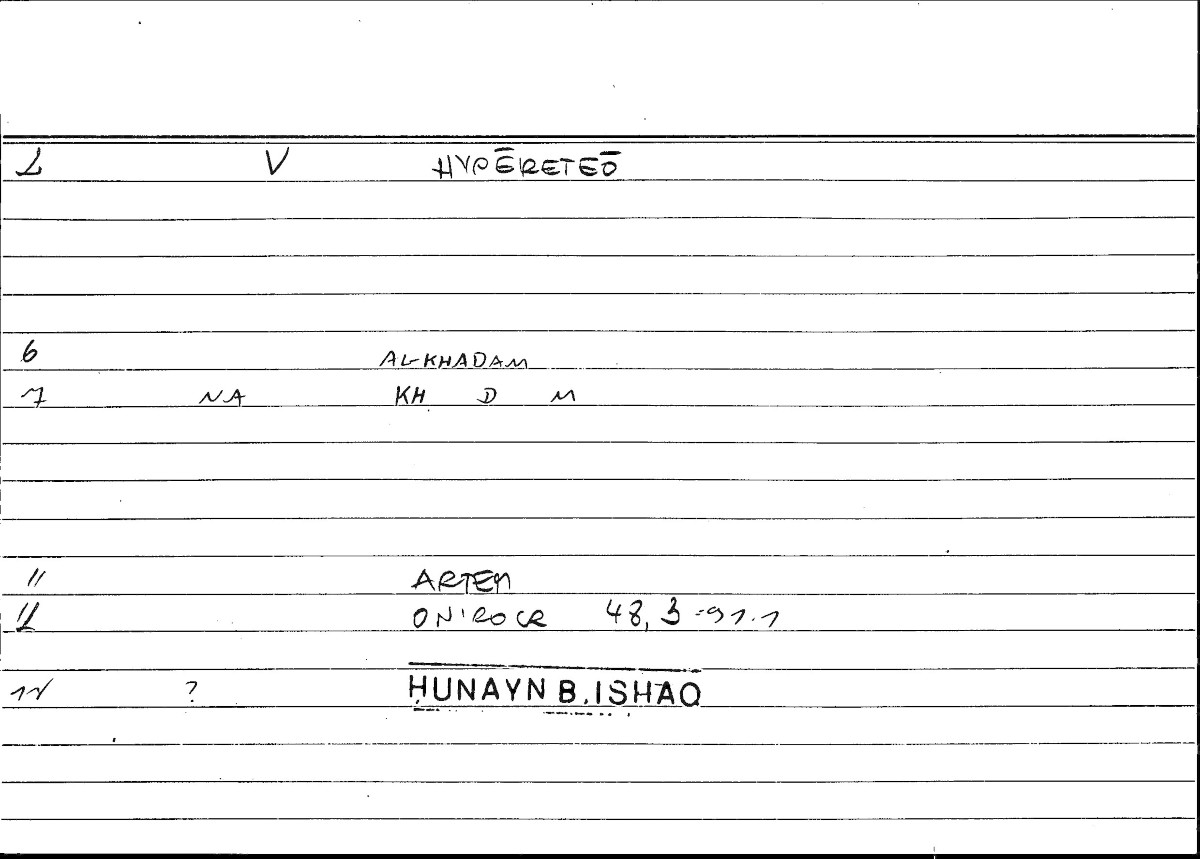 2 V HYPĒRETEŌ
6 AL-KHADAM
7 NA KH D M
11 ARTEM
12 ONIROCR 48,3 = 91.1
? ḤUNAYN B. ISḤAQ